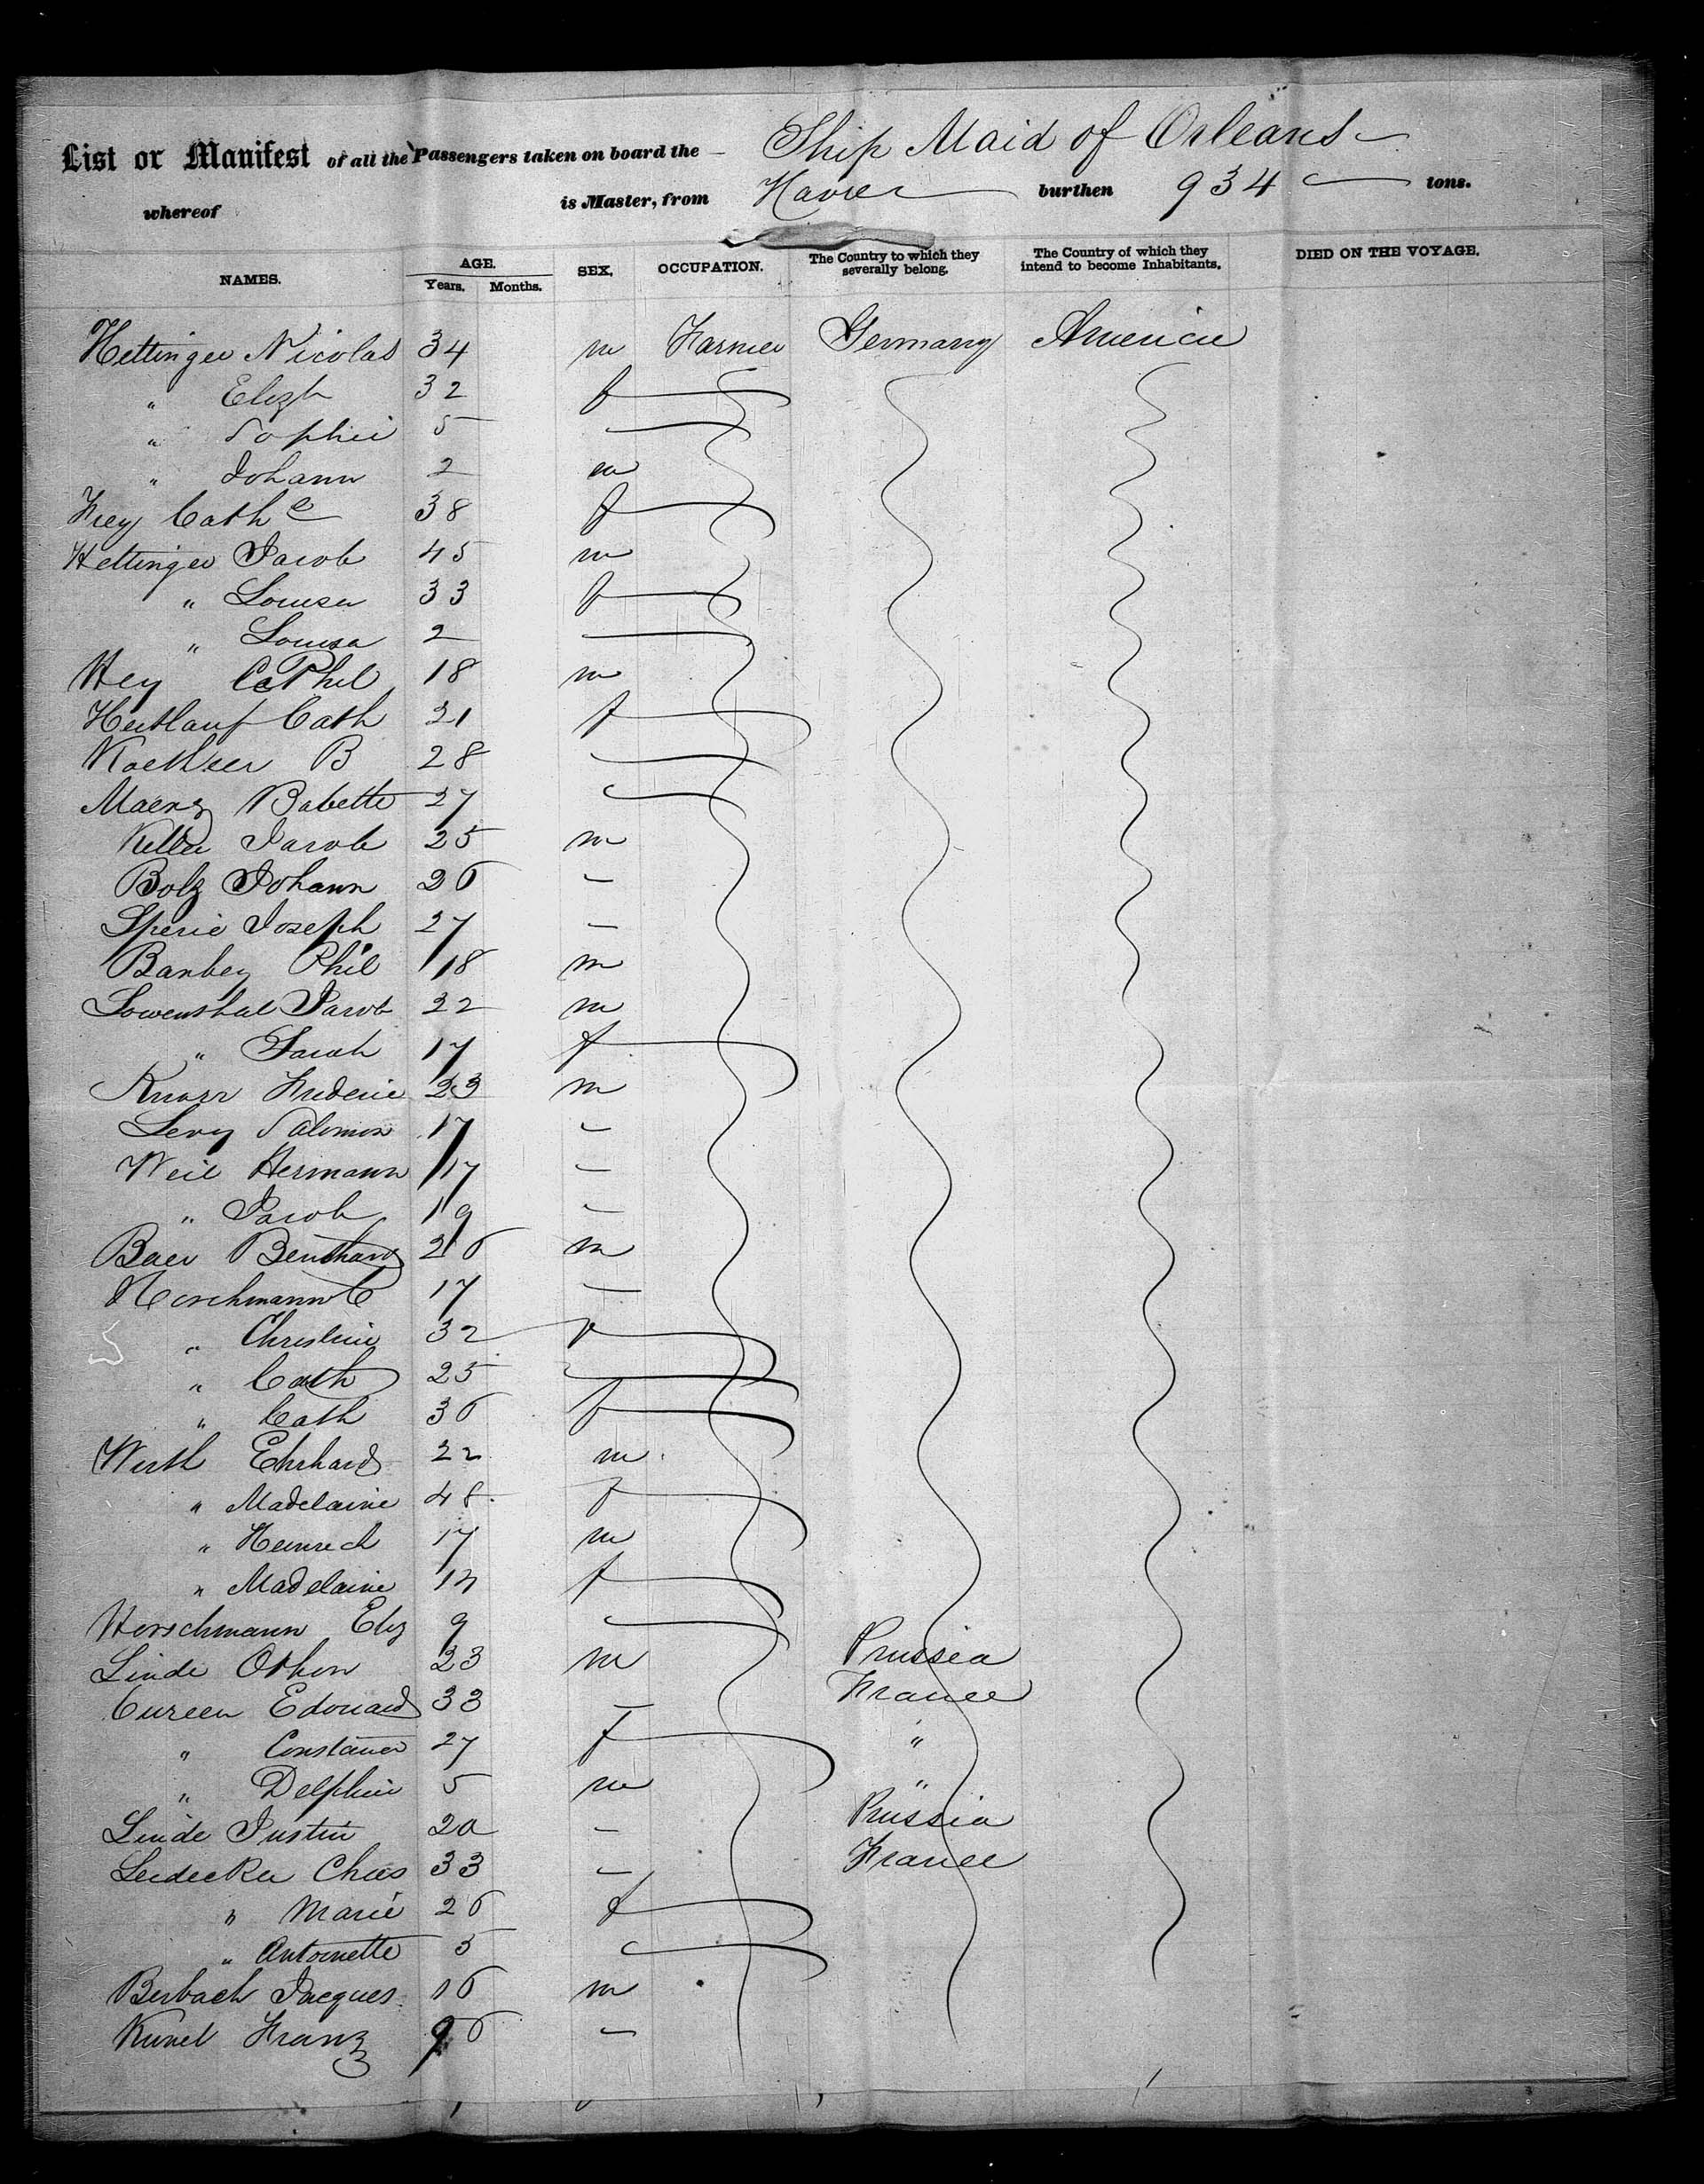 List or Manifest of all the Passengers taken on board the Ship Maid of Orleans
whereof is Master, from Havre burthen 934 tons.
NAMES. AGE. Years. Months. SEX. OCCUPATION. The Country to which they severally belong. The Country of which they intend to become Inhabitants. DIED ON THE VOYAGE.
Hettinger Nicolas 34 m Farmer Germany America
" Elizh 32 f
" Sophie 5
" Johann 2 m
Frey Cathe 38 f
Hettinger Jacob 45 m
" Louisa 33 f
" Louisa 2
Hey Phil 18 m
Heitlauf Cath 21 f
B 28
Maerz Babette 27
Keller Jacob 25 m
Bolz Johann 26 –
Joseph 27 –
Banbey Phil 18 m
Lowensthal Jacob 22 m
" Sarah 17 f
Knorr Frederic 23 m
Levy Salomon 17 –
Weil Hermann 17 –
" Jacob 19 –
Baer Bernhard 26 m
Horchmann C 17 –
" Christine 32 f
" Cath 25
" Cath 36 f
Wirth Ehrhard 22 m
" Madelaine 48 f
" Heinrich 17 m
" Madelaine 14 f
Horschmann Eliz 9
Linde Othon 23 m Prussia
Cureen Edouard 33 – France
" Constance 27 f "
" Delphin 5 m "
Linde Justin 20 – Prussia
Leidecker Chas 33 – France
" Marie 26 f
" Antoinette 5
Berbach Jacques 16 m
Kunel Franz 96 –